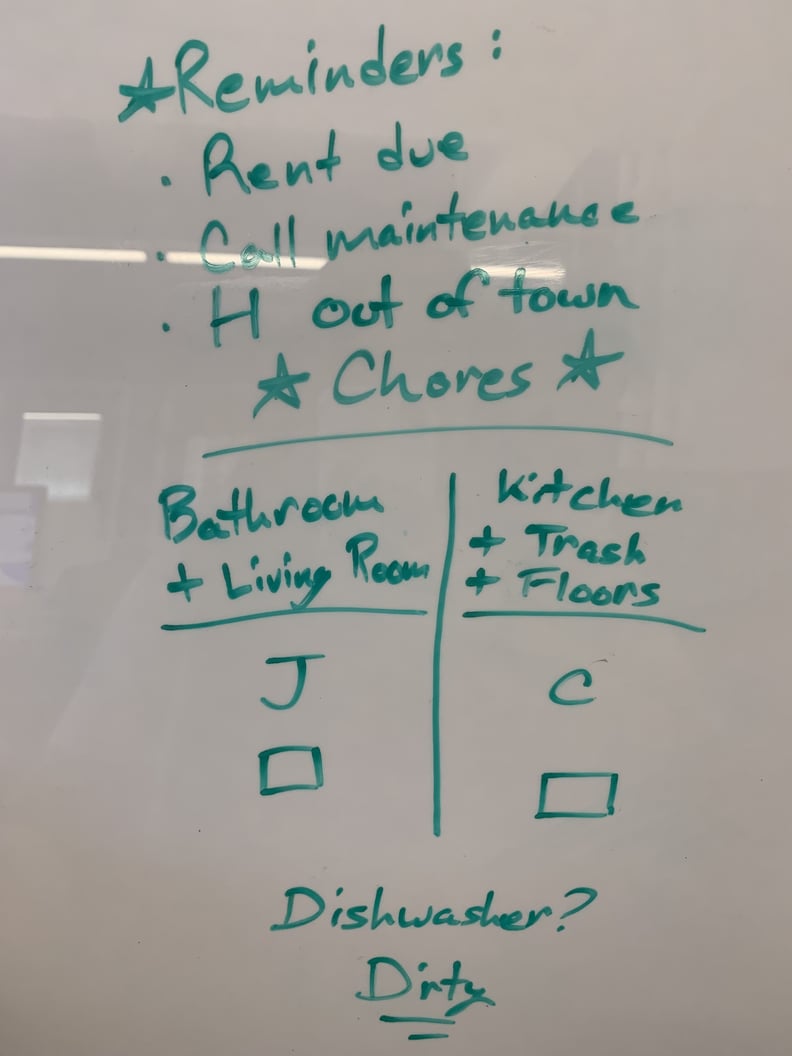 ★Reminders:
· Rent due
· Call maintenance
· H out of town
★ Chores ★
Bathroom
+ Living Room
Kitchen
+ Trash
+ Floors
J
C
Dishwasher?
Dirty